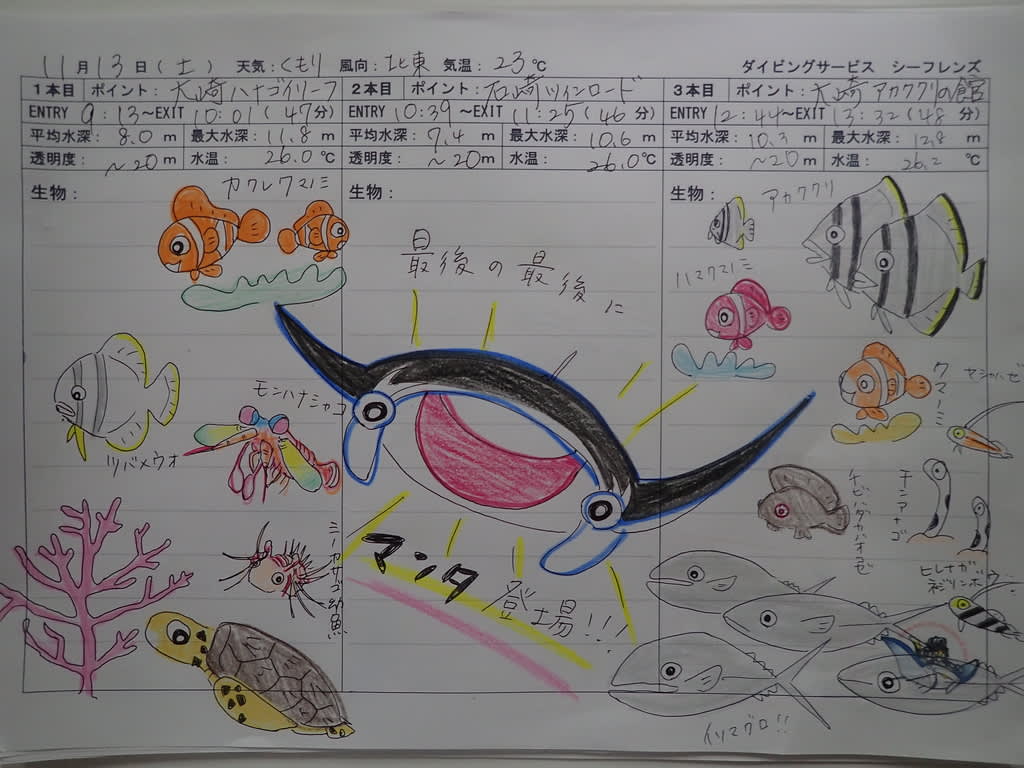 11月13日(土) 天気:くもり 風向:北東 気温:23℃ ダイビングサービス シーフレンズ
1本目 ポイント:大崎ハナゴイリーフ 2本目 ポイント:石崎ツインロード 3本目 ポイント:大崎アカククリの館
ENTRY 9:13~EXIT 10:01(47分) ENTRY 10:39~EXIT 11:25(46分) ENTRY 12:44~EXIT 13:32(48分)
平均水深:8.0m 最大水深:11.8m 平均水深:7.4m 最大水深:10.6m 平均水深:10.3m 最大水深:12.8m
透明度:~20m 水温:26.0℃ 透明度:~20m 水温:26.0℃ 透明度:~20m 水温:26.2℃
生物: カクレクマノミ
ツバメウオ
モンハナシャコ
ミノカサゴ幼魚
生物:
最後の最後に
マンタ登場!!!
生物: アカククリ
ハマクマノミ
クマノミ
ヤシャハゼ
チンアナゴ
ヒレナガネジリンボウ
イソマグロ!!